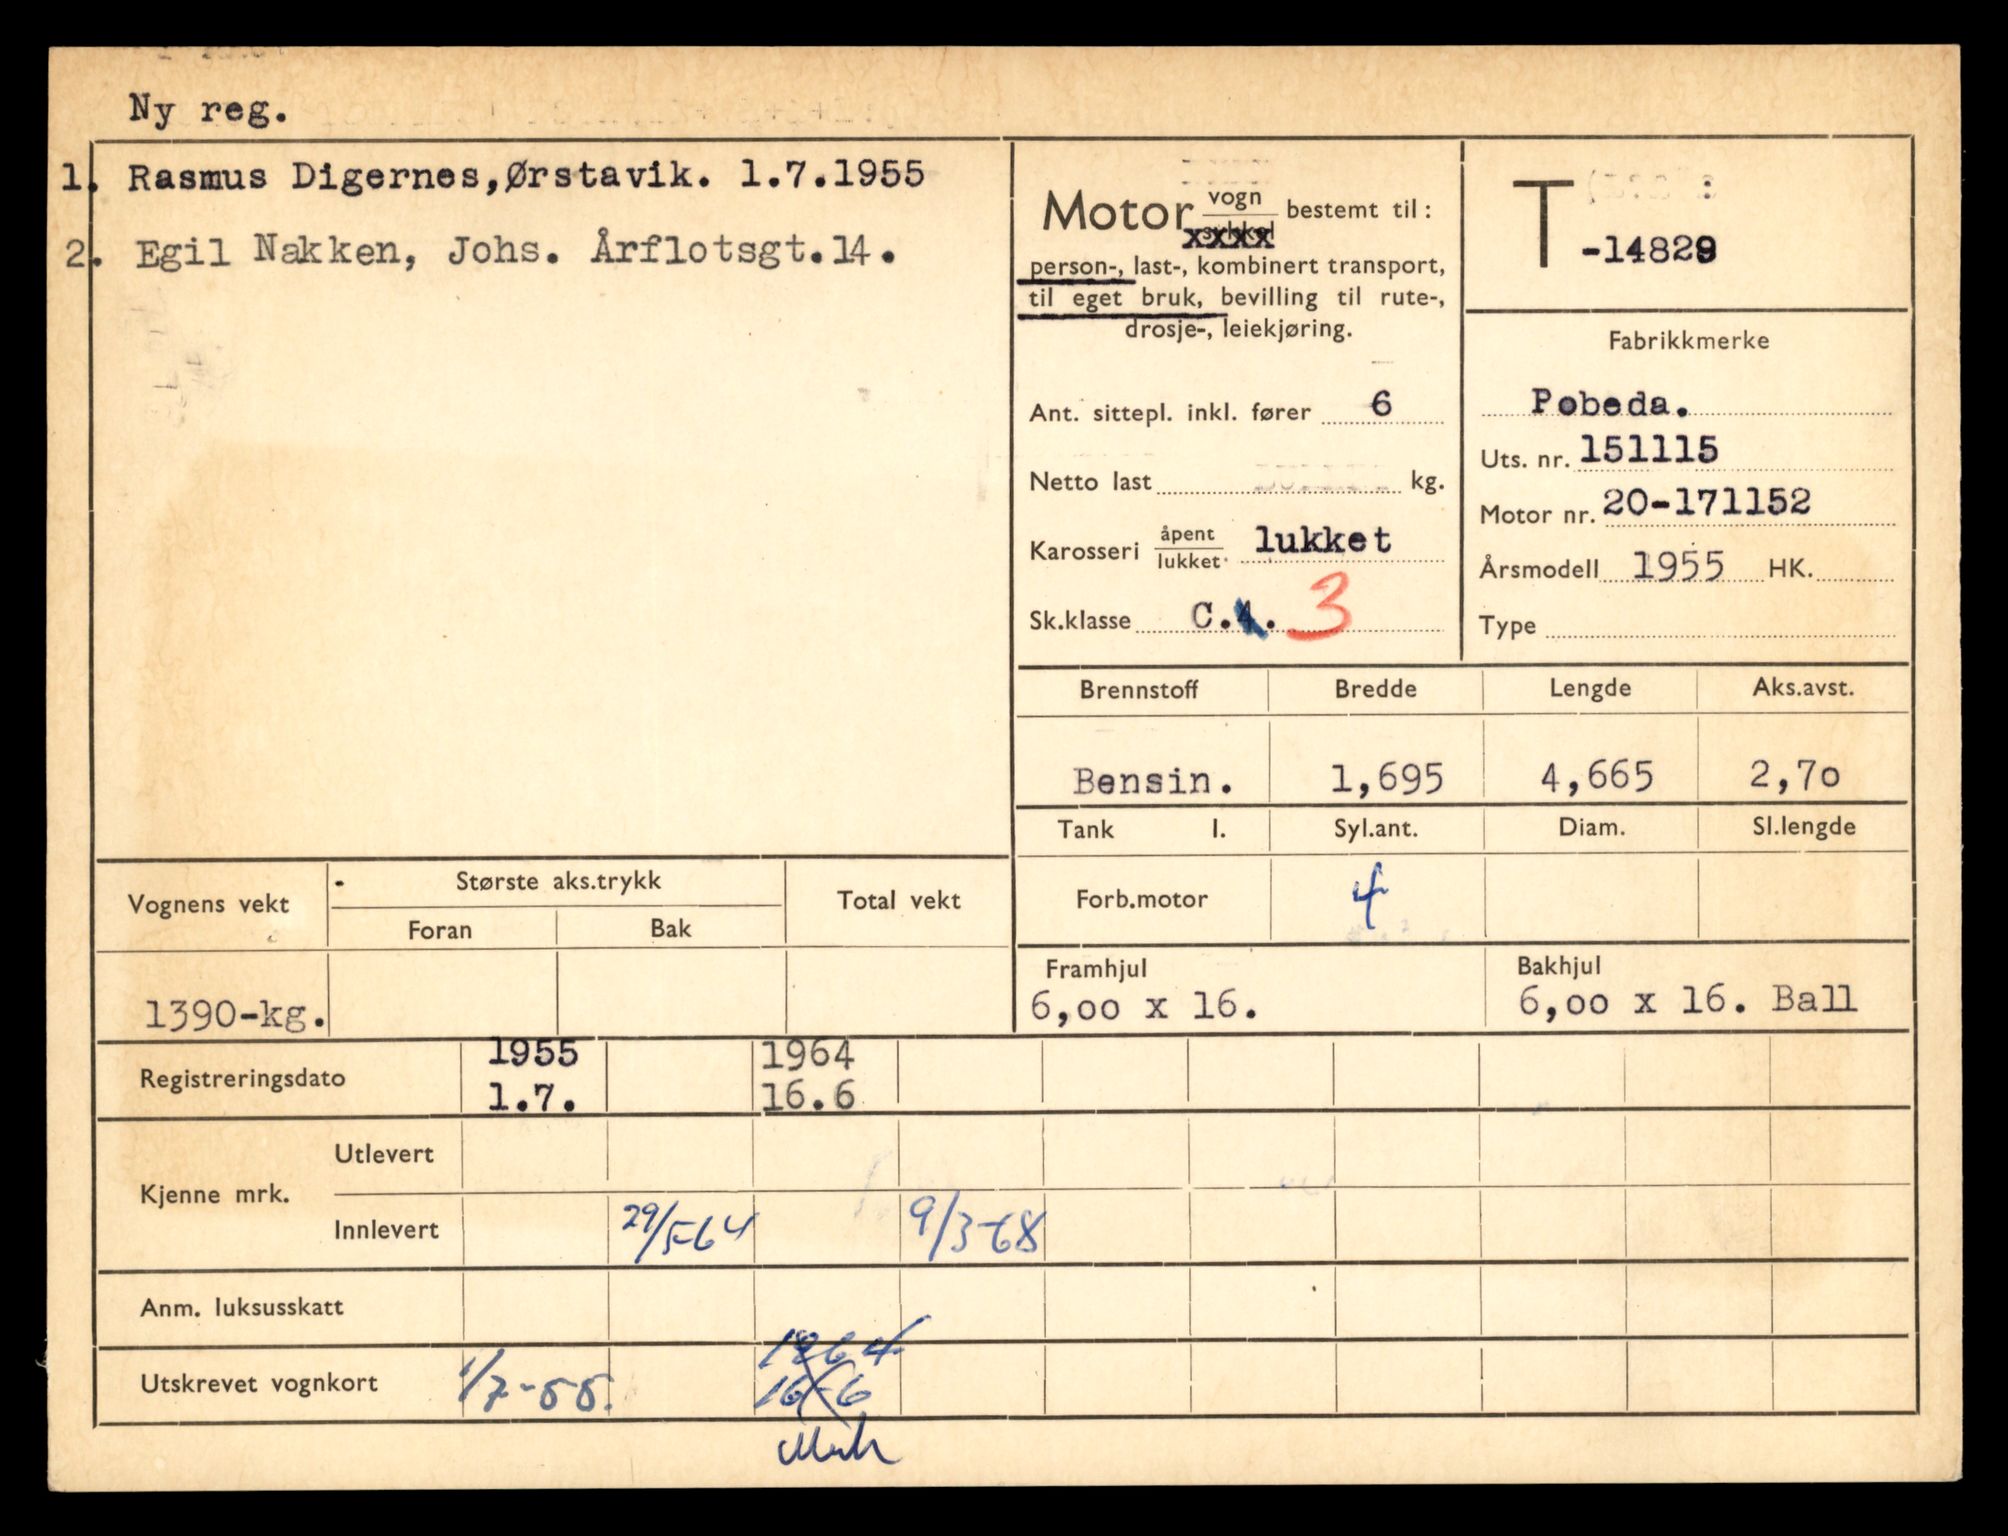 Ny reg.
1. Rasmus Digernes,Ørstavik. 1.7.1955
2. Egil Nakken, Johs. Årflotsgt.14.
Motor vogn bestemt til:
xxxx
person-, last-, kombinert transport,
til eget bruk, bevilling til rute-,
drosje-, leiekjøring.
Ant. sittepl. inkl. fører 6
Netto last kg.
Karosseri åpent lukket. lukket
Sk.klasse C.4. 3
T-14829
Fabrikkmerke
Pobeda.
Uts. nr. 151115
Motor nr. 20-171152
Årsmodell 1955 HK.
Type
Brennstoff Bredde Lengde Aks.avst.
Bensin. 1,695 4,665 2,70
Tank l. Syl.ant. Diam. Sl.lengde
Forb.motor 4
Framhjul Bakhjul
6,00 x 16. 6,00 x 16. Ball
Vognens vekt Største aks.trykk Total vekt
Foran Bak
1390-kg.
Registreringsdato 1955 1964
1.7. 16.6
Kjenne mrk. Utlevert
Innlevert 29/5-64 9/3-68
Anm. luksusskatt
Utskrevet vognkort 1/7-55. 1964
16-6